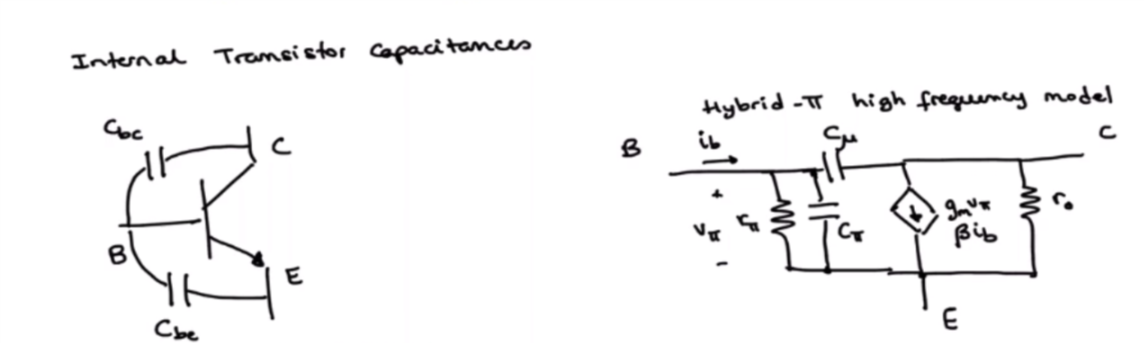 Internal Transistor Capacitances
Cbc
C
B
E
Cbe
Hybrid-π high frequency model
B
ib
Cμ
C
+
vπ
rπ
Cπ
gmvπ
βib
ro
-
E